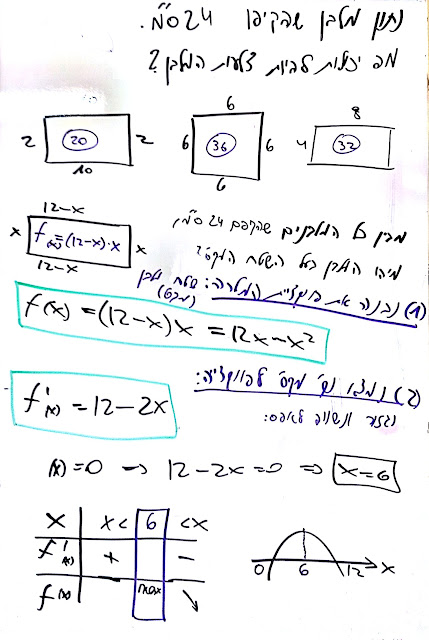 נתון מלבן שהקיפו 24 ס"מ.
מה יכולות להיות צלעות המלבן?
2 20 2
10
6
6 36 6
6
8
4 32
12-x
x f(x)=(12-x)·x x
12-x
מבין כל המלבנים שהקפם 24 ס"מ,
מיהו המלבן בעל השטח המקס'?
(1) נבנה את פונקציית המטרה: שטח מלבן
(מקס')
f(x) = (12-x)x = 12x-x²
(2) נמצא נק' מקס' לפונקציה:
נגזור ונשווה לאפס:
f'(x) = 12-2x
(x)=0 → 12-2x=0 ⇒ x=6
x | x< | 6 | <x
f'(x) | + | | -
f(x) | | max | ↘
0 6 12 x